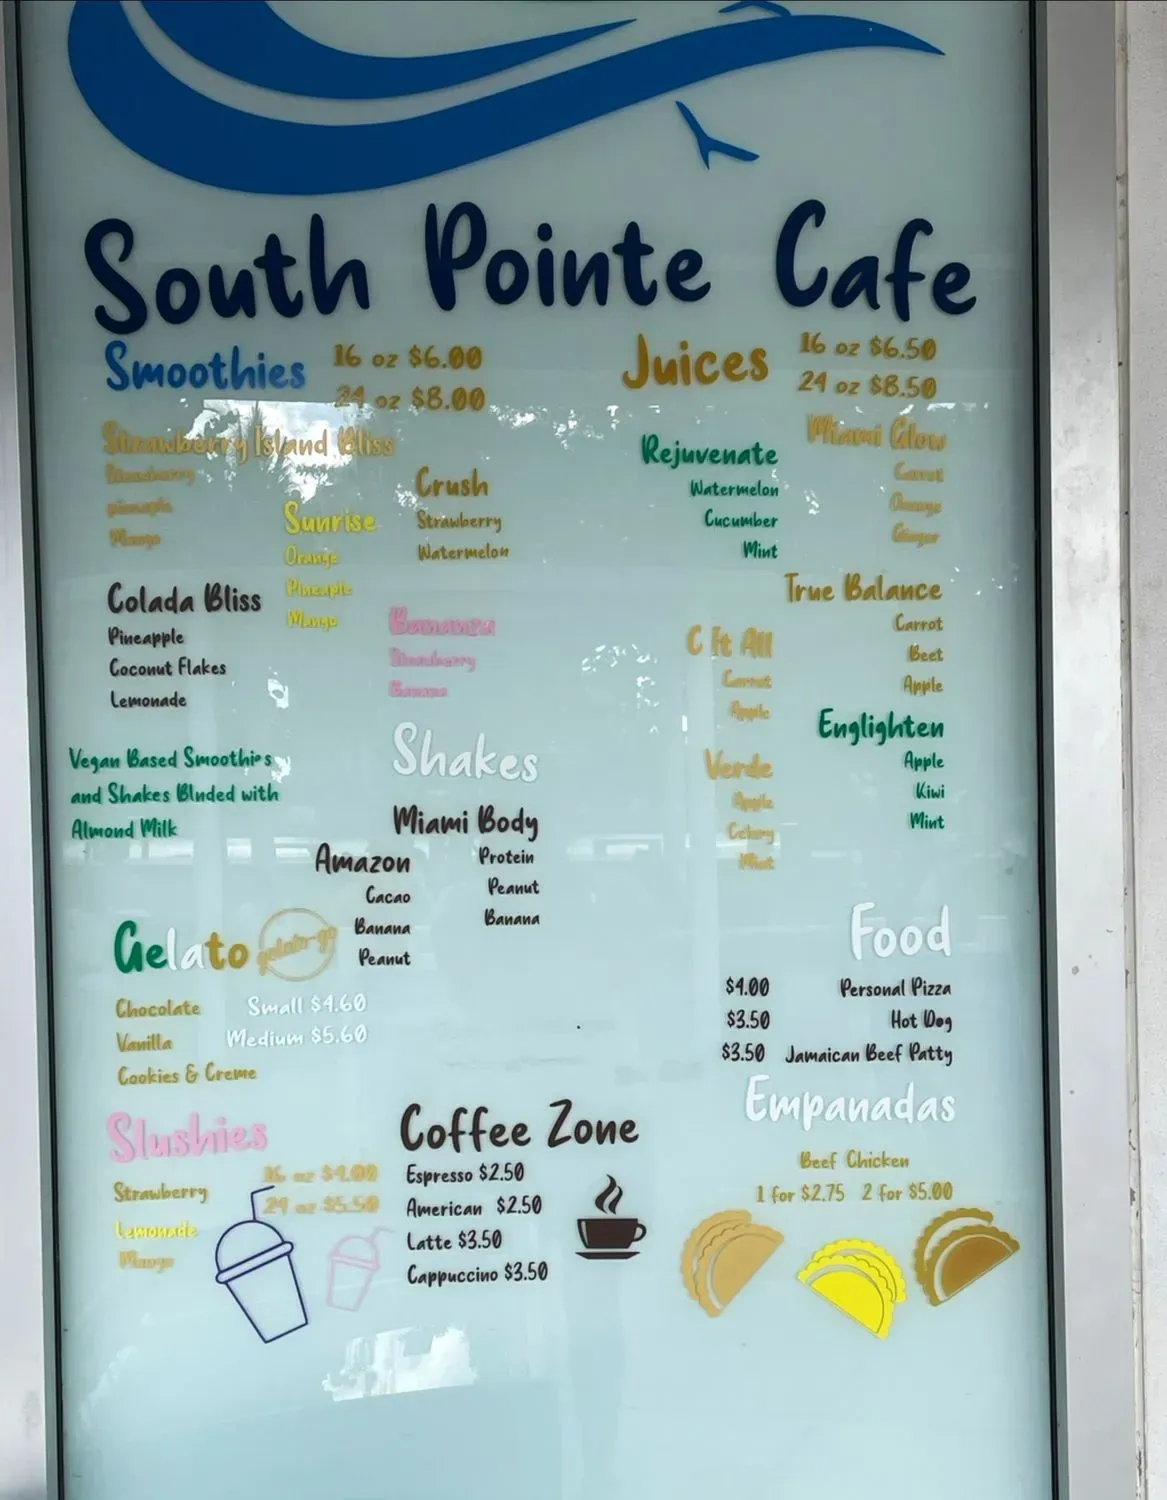 South Pointe Cafe
Smoothies
16 oz $6.00
24 oz $8.00
Strawberry Island Bliss
Strawberry
pineaple
Mango
Sunrise
Orange
Pineaple
Mango
Crush
Strawberry
Watermelon
Colada Bliss
Pineapple
Coconut Flakes
Lemonade
Bananza
Strawberry
Banana
Vegan Based Smoothies
and Shakes Blnded with
Almond Milk
Shakes
Miami Body
Protein
Peanut
Banana
Amazon
Cacao
Banana
Peanut
Gelato
gelato-go
Chocolate
Vanilla
Cookies & Creme
Small $4.60
Medium $5.60
Slushies
16 oz $4.00
24 oz $5.50
Strawberry
Lemonade
Mango
Coffee Zone
Espresso $2.50
American $2.50
Latte $3.50
Cappuccino $3.50
Juices
16 oz $6.50
24 oz $8.50
Rejuvenate
Watermelon
Cucumber
Mint
Miami Glow
Carrot
Orange
Ginger
True Balance
Carrot
Beet
Apple
C It All
Carrot
Apple
Englighten
Apple
Kiwi
Mint
Verde
Apple
Celery
Mint
Food
$4.00 Personal Pizza
$3.50 Hot Dog
$3.50 Jamaican Beef Patty
Empanadas
Beef Chicken
1 for $2.75 2 for $5.00